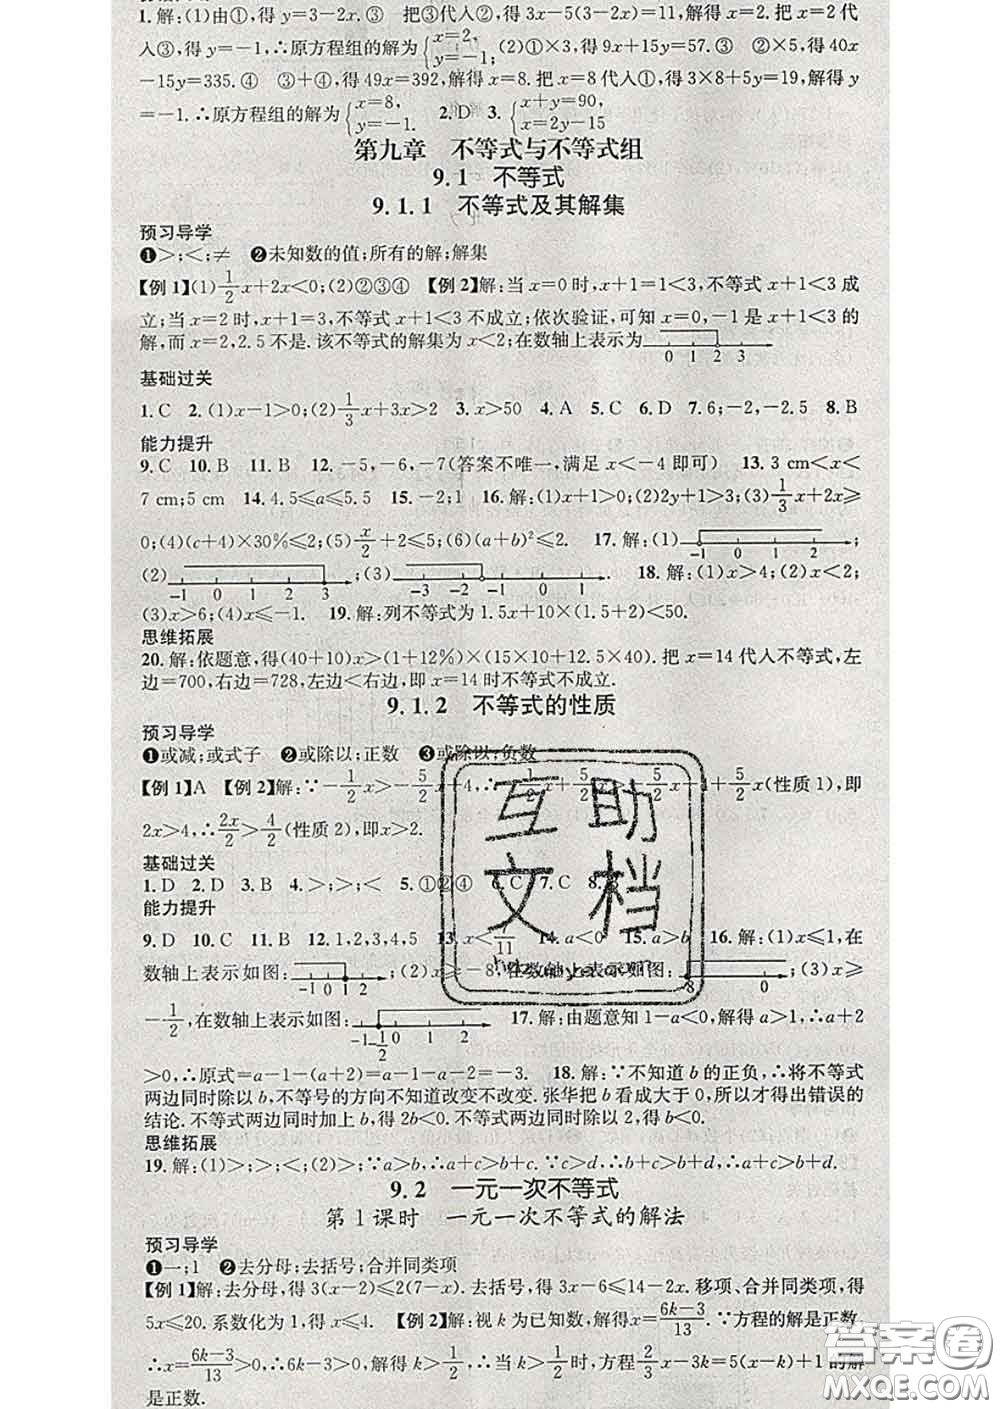 1.解:(1)由①,得 y=3-2x.③ 把③代入②,得 3x-5(3-2x)=11,解得 x=2.把 x=2 代
入③,得 y=-1,∴原方程组的解为{x=2, y=-1; (2)①×3,得 9x+15y=57.③ ②×5,得 40x
-15y=335.④ ③+④,得 49x=392,解得 x=8.把 x=8 代入①,得 3×8+5y=19,解得 y
=-1.∴原方程组的解为{x=8, y=-1. 2.D 3.{x+y=90, x=2y-15
第九章 不等式与不等式组
9.1 不等式
9.1.1 不等式及其解集
预习导学
❶>;<;≠ ❷未知数的值;所有的解;解集
【例1】(1)1/2x+2x<0;(2)②③④ 【例2】解:当 x=0 时,x+1=1<3,不等式 x+1<3 成
立;当 x=2 时,x+1=3,不等式 x+1<3 不成立;依次验证,可知 x=0,-1 是 x+1<3 的
解,而 x=2,2.5 不是.该不等式的解集为 x<2;在数轴上表示为 0 1 2 3
基础过关
1.C 2.(1)x-1>0;(2)1/3x+3x>2 3.x>50 4.A 5.C 6.D 7.6;-2,-2.5 8.B
能力提升
9.C 10.B 11.B 12.-5,-6,-7(答案不唯一,满足 x<-4 即可) 13.3 cm<x<
7 cm;5 cm 14.4.5≤a≤5.5 15.-2;1 16.解:(1)x+1>0;(2)2y+1>3;(3)1/3x+2x≥
0;(4)(c+4)×30%≤2;(5)x/2+2≤5;(6)(a+b)²≤2. 17.解:(1) -1 0 1 2 ;
(2) -1 0 1 2 3 ;(3) -3 -2 -1 0 1 . 18.解:(1)x>4;(2)x<2;
(3)x>6;(4)x≤-1. 19.解:列不等式为 1.5x+10×(1.5+2)<50.
思维拓展
20.解:依题意,得(40+10)x>(1+12%)×(15×10+12.5×40).把 x=14 代入不等式,左
边=700,右边=728,左边<右边,即 x=14 时不等式不成立.
9.1.2 不等式的性质
预习导学
❶或减;或式子 ❷或除以;正数 ❸或除以;负数
【例1】A 【例2】解:∵-1/2x>-5/2x+4,∴-1/2x+5/2x>-5/2x+4+5/2x(性质 1),即
2x>4,∴2x/2>4/2(性质 2),即x>2.
基础过关
1.D 2.D 3.B 4.>;>;< 5.①②④ 6.C 7.C 8.
能力提升
9.D 10.C 11.B 12.1,2,3,4,5 13.x<7/11 14.a<0 15.a>b 16.解:(1)x≤1,在
数轴上表示如图: -1 0 1 2 ;(2)x≥-8,在数轴上表示如图: -8 0 ;(3)x≥
-1/2,在数轴上表示如图: -1 -1/2 0 1 2 . 17.解:由题意知 1-a<0,解得 a>1,∴a+2
>0,∴原式=a-1-(a+2)=a-1-a-2=-3. 18.解:∵不知道 b 的正负,∴将不等式
两边同时除以 b,不等号的方向不知道改变不改变.张华把 b 看成大于 0,所以才得出错误的
结论.不等式两边同时加上 b,得 2b<0.不等式两边同时除以 2,得 b<0.
思维拓展
19.解:(1)>;>;<;(2)>;∵a>b,∴a+c>b+c.∵c>d,∴b+c>b+d,∴a+c>b+d.
9.2 一元一次不等式
第 1 课时 一元一次不等式的解法
预习导学
❶一;1 ❷去分母;去括号;合并同类项
【例1】解:去分母,得 3(x-2)≤2(7-x).去括号,得 3x-6≤14-2x.移项、合并同类项,得
5x≤20.系数化为 1,得 x≤4. 【例2】解:视 k 为已知数,解得x=(6k-3)/13.∵方程的解是正数,
∴x=(6k-3)/13>0,∴6k-3>0,解得 k>1/2,∴当 k>1/2时,方程2/3x-3k=5(x-k)+1 的解
是正数.
互助
文档
答案圈
MXQE.COM